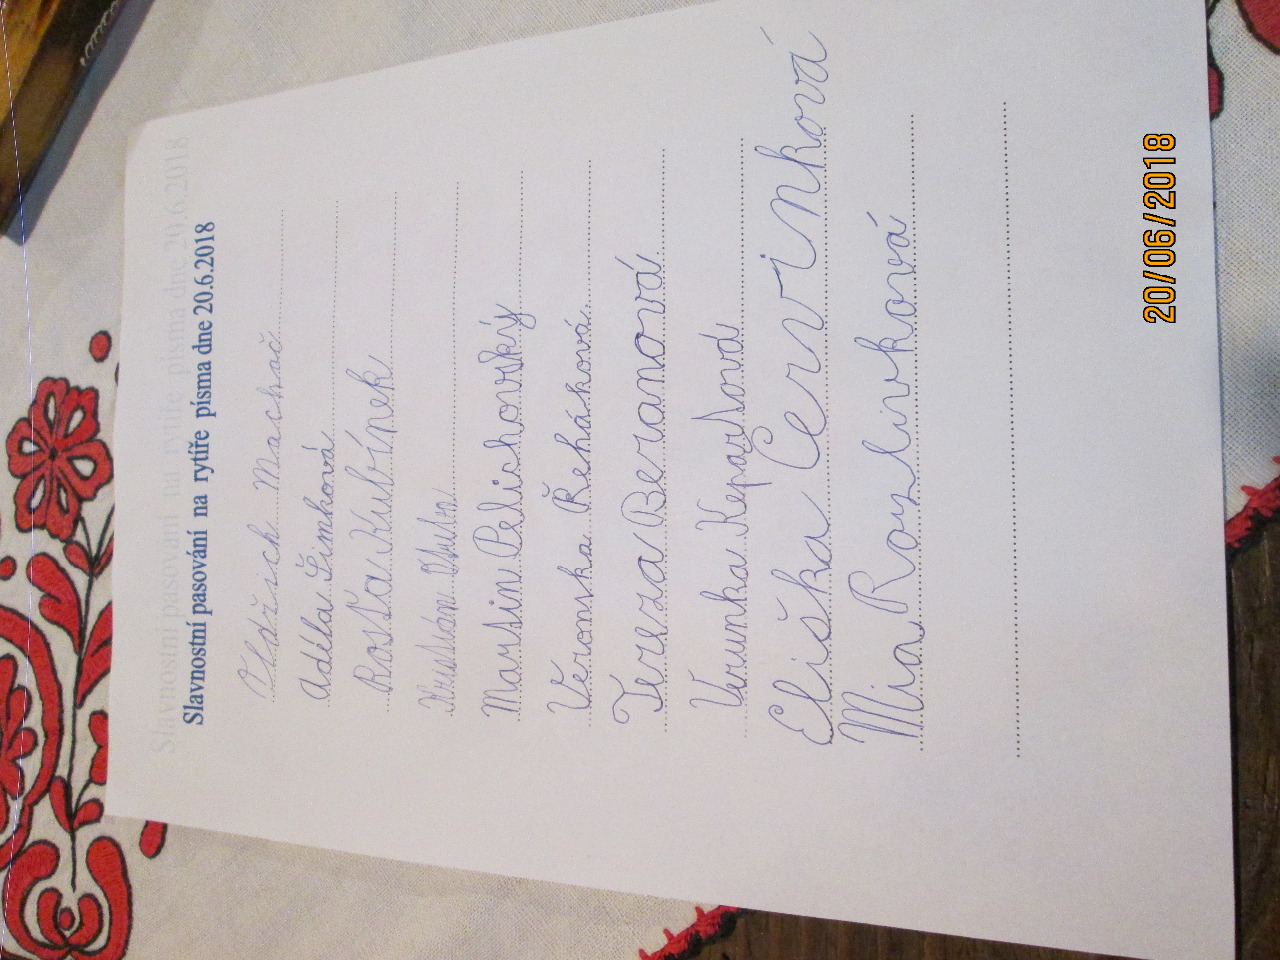 Slavnostní pasování na rytíře písma dne 20.6.2018
Slavnostní pasování na rytíře písma dne 20.6.2018
Oldřich Machač
Adéla Šimková
Rosťa Kubínek
Kristián
Martin Pelichovský
Veronika Řeháková
Tereza Beranová
Verunka Kepartová
Eliška Červinková
Mia Rozlivková
20/06/2018